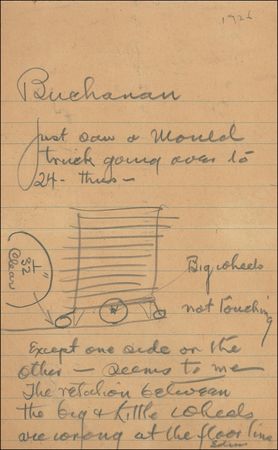 1926
Buchanan
Just saw a Mould
truck going over to
24 - thus -
1/32"
Clear
Big wheels
not touching
Except one side or the
other - seems to me
The relation between
the big & little wheels
are wrong at the floor line
Edison